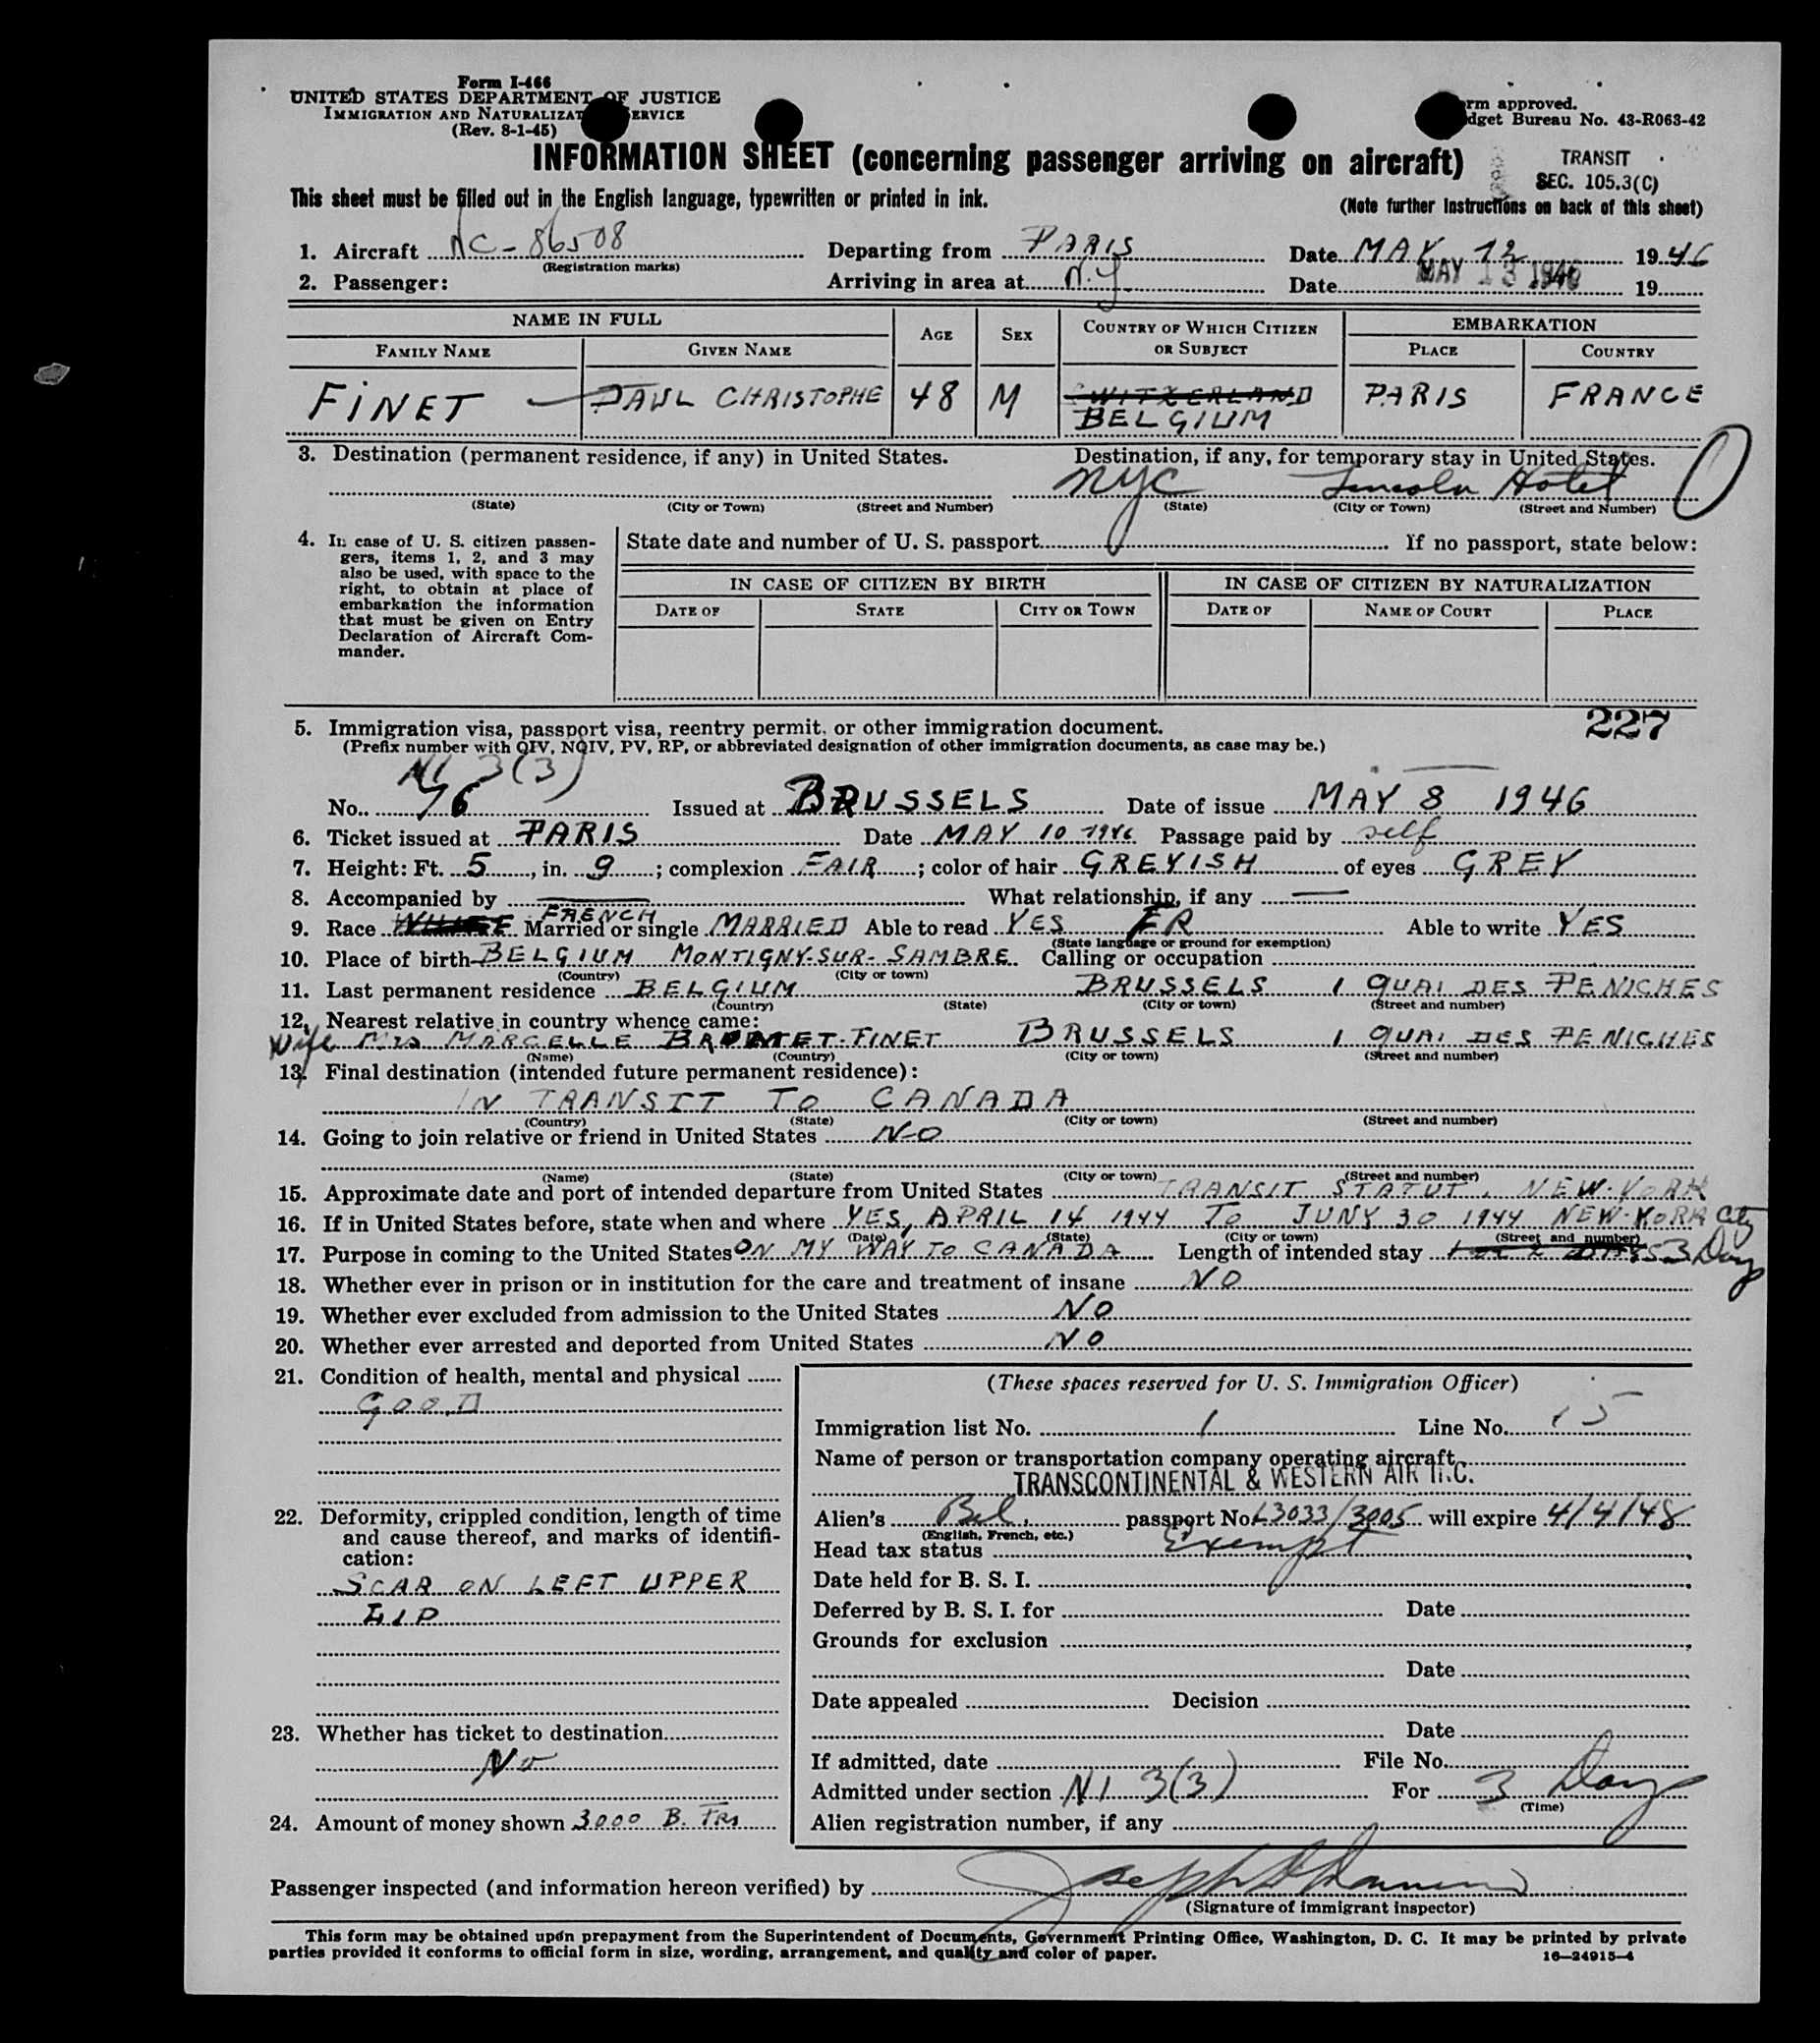 Form I-466
UNITED STATES DEPARTMENT OF JUSTICE
(Rev. 8-1-45)
rm approved.
dget Bureau No. 43-R063-42
INFORMATION SHEET (concerning passenger arriving on aircraft)
TRANSIT
SEC. 105.3(C)
This sheet must be filled out in the English language, typewritten or printed in ink.
(Note further instructions on back of this sheet)
1. Aircraft NC-86508 Departing from PARIS Date MAY 12 1946
(Registration marks)
2. Passenger: Arriving in area at N.Y Date MAY 13 1946 19
NAME IN FULL AGE SEX COUNTRY OF WHICH CITIZEN OR SUBJECT EMBARKATION
FAMILY NAME GIVEN NAME PLACE COUNTRY
FINET PAUL CHRISTOPHE 48 M SWITZERLAND PARIS FRANCE
BELGIUM
3. Destination (permanent residence, if any) in United States. Destination, if any, for temporary stay in United States.
NYC Lincoln Hotel
(State) (City or Town) (Street and Number) (State) (City or Town) (Street and Number)
4. In case of U. S. citizen passen-
gers, items 1, 2, and 3 may
also be used, with space to the
right, to obtain at place of
embarkation the information
that must be given on Entry
Declaration of Aircraft Com-
mander.
State date and number of U. S. passport If no passport, state below:
IN CASE OF CITIZEN BY BIRTH IN CASE OF CITIZEN BY NATURALIZATION
DATE OF STATE CITY OR TOWN DATE OF NAME OF COURT PLACE
227
5. Immigration visa, passport visa, reentry permit, or other immigration document.
(Prefix number with QIV, NQIV, PV, RP, or abbreviated designation of other immigration documents, as case may be.)
NI 3(3)
No. 76 Issued at BRUSSELS Date of issue MAY 8 1946
6. Ticket issued at PARIS Date MAY 10 1946 Passage paid by self
7. Height: Ft. 5, in. 9; complexion FAIR; color of hair GREYISH of eyes GREY
8. Accompanied by — What relationship, if any —
9. Race WHITE FRENCH Married or single MARRIED Able to read YES FR Able to write YES
(State language or ground for exemption)
10. Place of birth BELGIUM MONTIGNY-SUR-SAMBRE Calling or occupation
(Country) (City or town)
11. Last permanent residence BELGIUM BRUSSELS 1 QUAI DES PENICHES
(Country) (State) (City or town) (Street and number)
12. Nearest relative in country whence came:
Wife Mrs MARCELLE FINET BRUSSELS 1 QUAI DES PENICHES
(Name) (Country) (City or town) (Street and number)
13. Final destination (intended future permanent residence):
IN TRANSIT TO CANADA
(Country) (State) (City or town) (Street and number)
14. Going to join relative or friend in United States NO
(Name) (State) (City or town) (Street and number)
15. Approximate date and port of intended departure from United States TRANSIT STATUT. NEW-YORK
16. If in United States before, state when and where YES, APRIL 14 1944 TO JUNY 30 1944 NEW-YORK City
(Date) (State) (City or town) (Street and number)
17. Purpose in coming to the United States ON MY WAY TO CANADA Length of intended stay DAYS 3 Days
18. Whether ever in prison or in institution for the care and treatment of insane NO
19. Whether ever excluded from admission to the United States NO
20. Whether ever arrested and deported from United States NO
21. Condition of health, mental and physical
GOOD
22. Deformity, crippled condition, length of time
and cause thereof, and marks of identifi-
cation:
SCAR ON LEFT UPPER
LIP
23. Whether has ticket to destination
No
24. Amount of money shown 3000 B. FRS
(These spaces reserved for U. S. Immigration Officer)
Immigration list No. 1 Line No. 15
Name of person or transportation company operating aircraft
TRANSCONTINENTAL & WESTERN AIR INC.
Alien's Bel. passport No L3033/3005 will expire 4/4/48
(English, French, etc.)
Head tax status Exempt
Date held for B. S. I.
Deferred by B. S. I. for Date
Grounds for exclusion
Date
Date appealed Decision
Date
If admitted, date File No.
Admitted under section NI 3(3) For 3 Days
(Time)
Alien registration number, if any
Passenger inspected (and information hereon verified) by Joseph
(Signature of immigrant inspector)
This form may be obtained upon prepayment from the Superintendent of Documents, Government Printing Office, Washington, D. C. It may be printed by private
parties provided it conforms to official form in size, wording, arrangement, and quality and color of paper.
16—24915-4